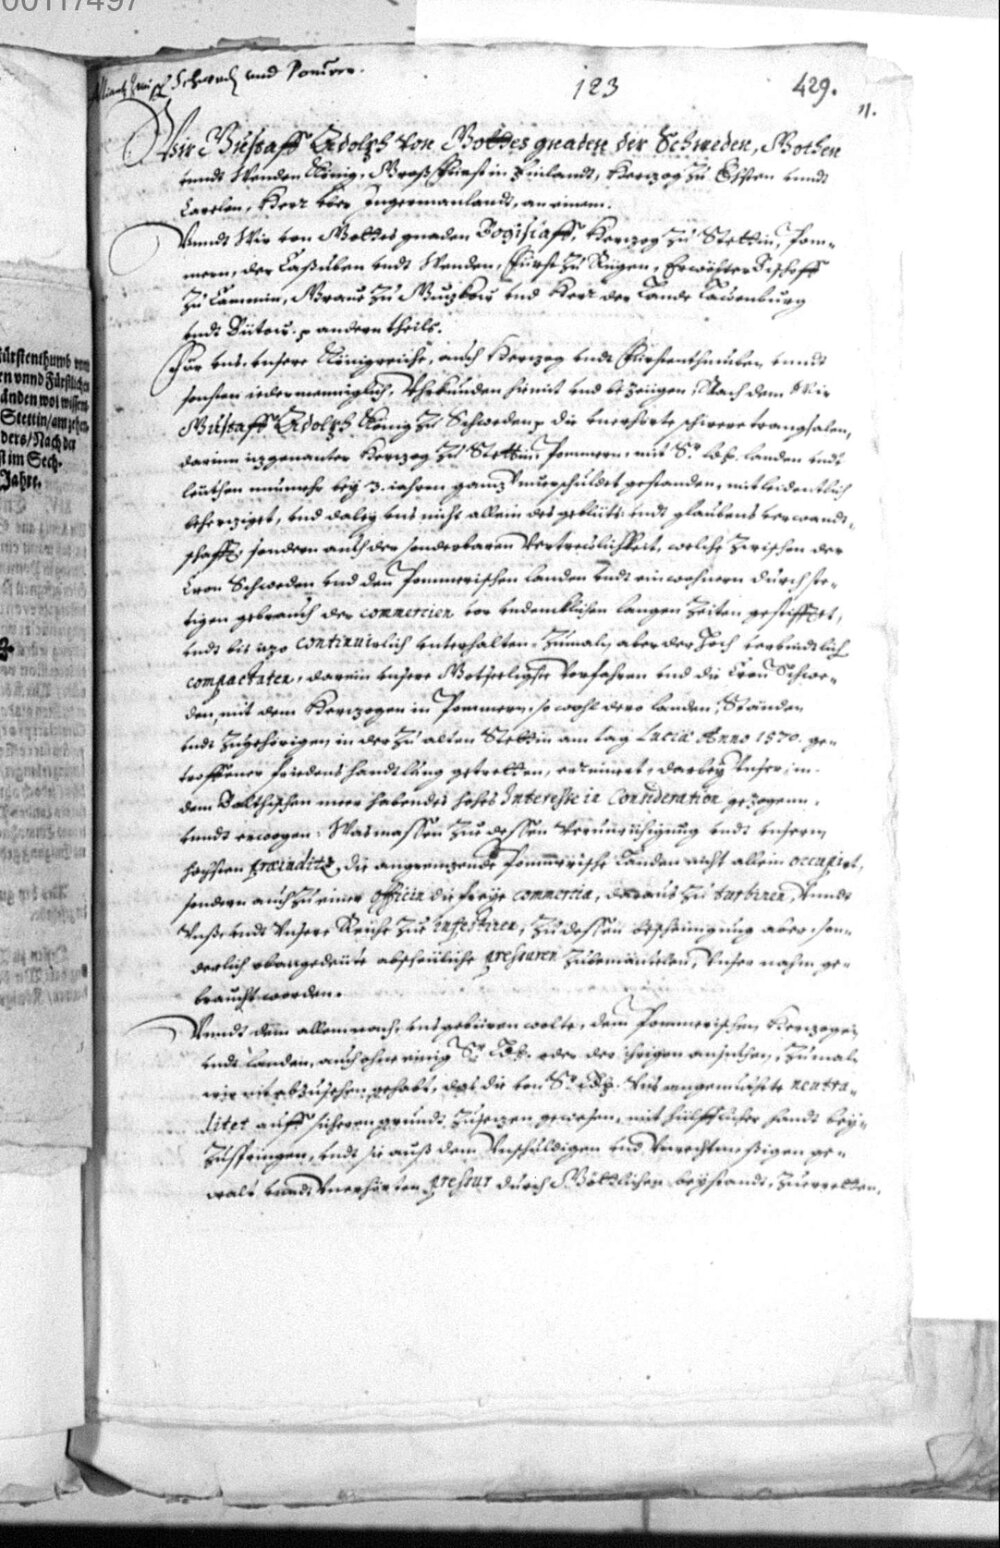 00117497
Alliantz Zwisch Schwed und Pomern.
123
429.
11.
Wir Gustaff Adolph von Gottes gnaden der Schweden, Gothen
undt Wenden König, Groß Fürst in Finlandt, Hertzog zu Ehsten undt
Carelen, Herr über Ingermanlandt, an einem.
Vnndt Wir von Gottes gnaden Bogislaff, Hertzog zu Stettin, Pom-
mern, der Caßuben undt Wenden, Fürst zu Rügen, Erwöhlter Bischoff
zu Cammin, Graue zu Gutzkow und Herr der Lande Lauenburg
undt Bütow. p andern theils.
Für uns, unsere Königreiche, auch Hertzog undt Fürstenthumben unndt
sonsten iedermenniglich, Uhrkunden hiemit und bezeugen, Nach dem Wir
Gustaff Adolph König zu Schweden p die unerhörte schwere trangsalen,
darinn itzgenanter Hertzog zu Stettin, Pommern, mit Sr. landen undt
leuthen nunmehr bey 3. iahren gantz unverschuldet gestanden, mitleidentlich
behertziget, und dabey uns nicht allein des geblüts undt glaubens verwandt-
schafft, sondern auch der sonderbaren Vertreulichkeit, welche zwischen der
Cron Schweden und den Pommerischen landen undt einwohnern durch ste-
tigen gebrauch der commercien vor undencklichen langen zeiten gestifftet,
undt bis itzo continuirlich unterhalten, zumaln aber der hoch verbindtlich
compactaten, darein unsere Gottseeligste Vorfahren und die Cron Schwe-
den, mit dem Hertzogen in Pommern, so wohl dero landen, Ständen
undt Zugehörigen in der zu alten Stettin am tag Luciæ Anno 1570. ge-
troffener friedens handtlung getretten, erinnert, darbey Unser, in
dem Balthischen meer habendes hohes Interesse in Consideration gezogenn,
unndt erwogen: Was massen zu dessen Verunruhigung undt unserm
höchsten præiudits, die angrenzende Pommerische Landen nicht allein occupirt,
sondern auch zu einer officin die freye commercia, daraus zu turbiren, unndt
Uns undt Unsere Reiche zu infestiren, zu dessen bescheinigung aber son-
derlich obangedeute abscheuliche pressuren zubemäntelen, Unser nahm ge-
braucht worden.
Vnndt dem allem nach, uns gebüren wolte, dem Pommerischen Hertzogen
undt landen, auch ohne einig Sr. oder der ihrigen ansuchen, zumaln
wir nit abzusehen gehabt, das die von Sr. Uns angemuthete neutra-
litet auff sicheren grundt zusetzen gewesen, mit hülfflicher handt bey-
zuspringen, undt sie auß dem Unschuldigen und Unrechtmeßigen ge-
walt unndt Unerhörten pressur durch Göttlichen beystandt, zuerretten,
Fürstenthumb
en vnnd Fürstliche
änden wol wissen
Stettin/am zehen
ders/Nach der
st im Sech-
Jahre.